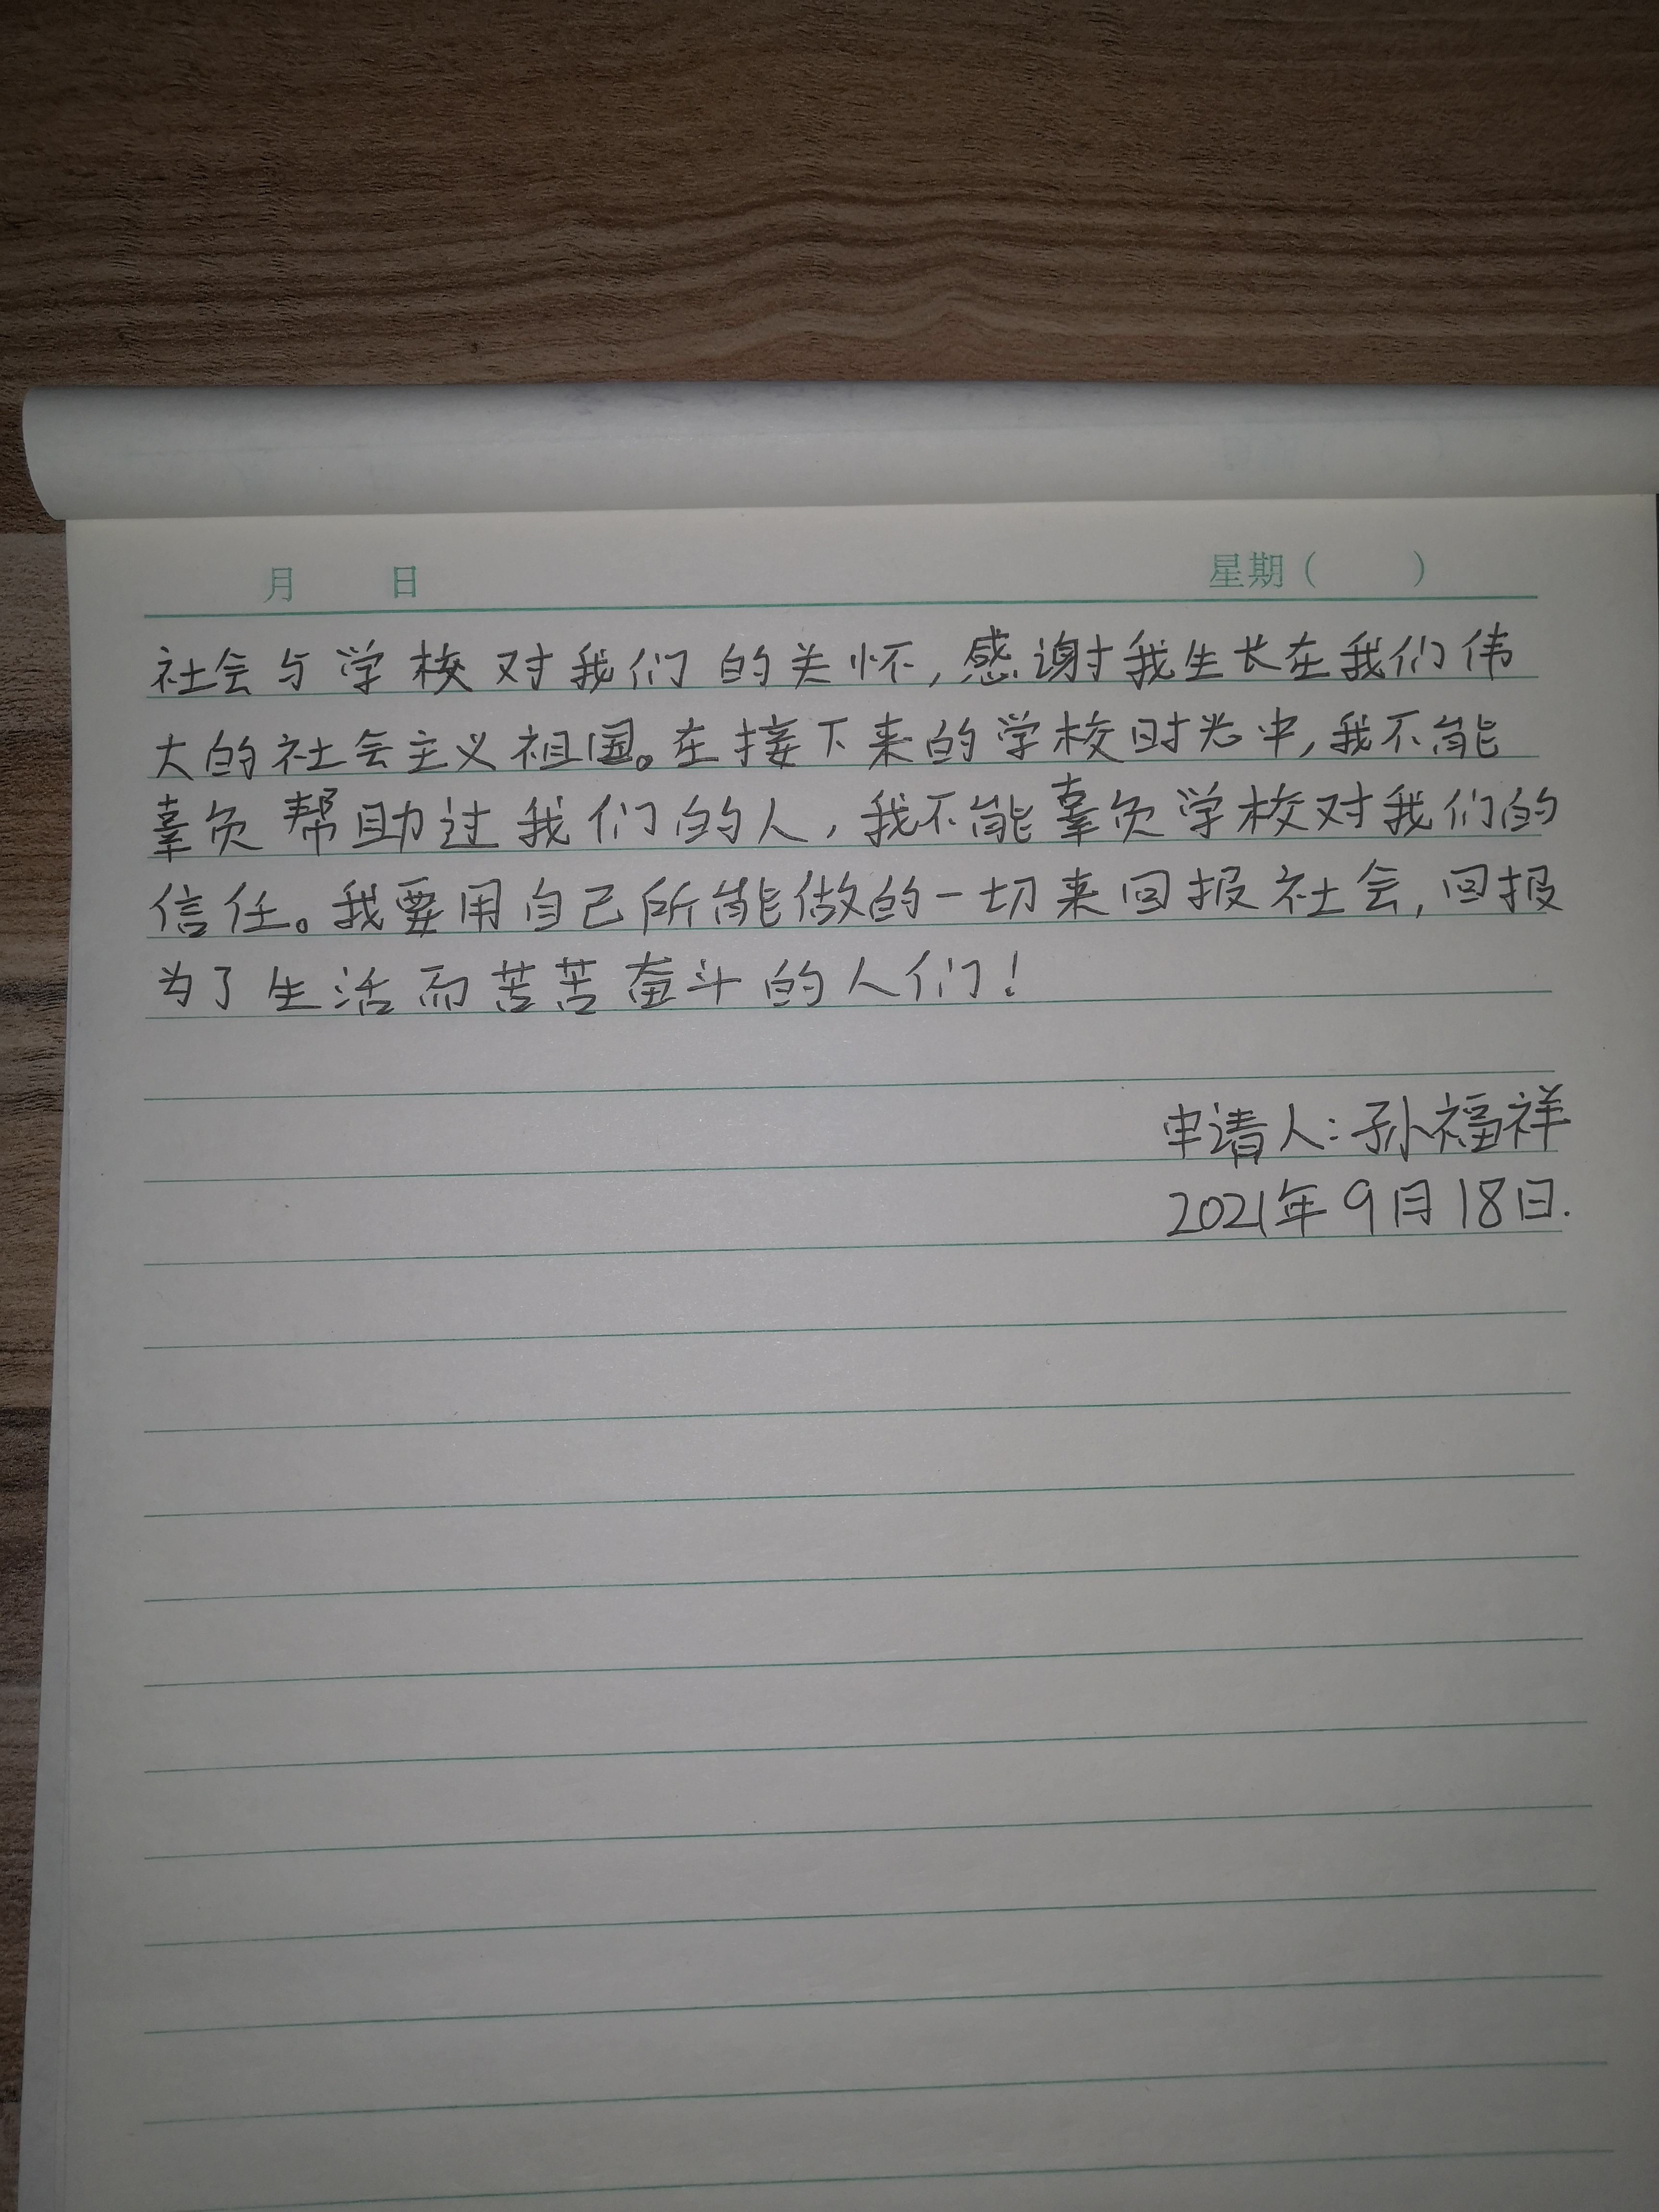 月 日 星期( )
社会与学校对我们的关怀,感谢我生长在我们伟
大的社会主义祖国。在接下来的学校时光中,我不能
辜负帮助过我们的人,我不能辜负学校对我们的
信任。我要用自己所能做的一切来回报社会,回报
为了生活而苦苦奋斗的人们!
申请人:孙福祥
2021年9月18日.